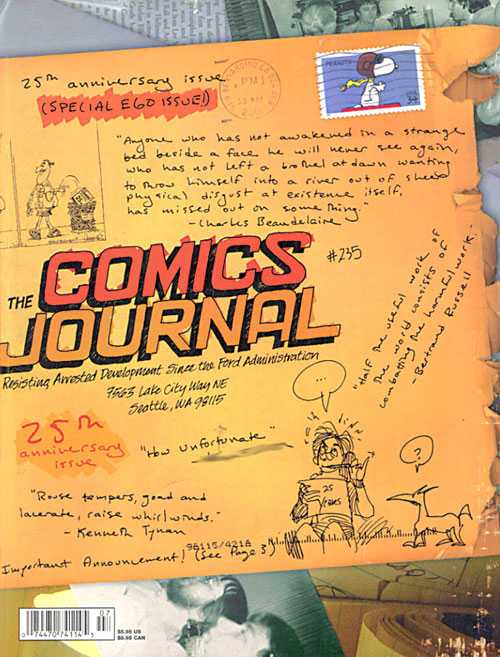 25th anniversary issue
(SPECIAL EGO ISSUE!)
PM 1
PEANUTS
34
"Anyone who has not awakened in a strange
bed beside a face he will never see again,
who has not left a brothel at dawn wanting
to throw himself into a river out of sheer
physical disgust at existence itself,
has missed out on something."
- Charles Beaudelaire
#235
THE
COMICS
JOURNAL
Resisting Arrested Development Since the Ford Administration
7563 Lake City Way NE
Seattle, WA 98115
"Half the useful work of
the world consists of
combatting the harmful work."
- Bertrand Russell
25th
anniversary
issue
"How Unfortunate"
...
25
YEARS
?
"Rouse tempers, goad and
lacerate, raise whirlwinds."
- Kenneth Tynan
98115/4218
Important Announcement! (See Page 3)
07
0 74470 74114 5
$5.95 US
$9.95 CAN